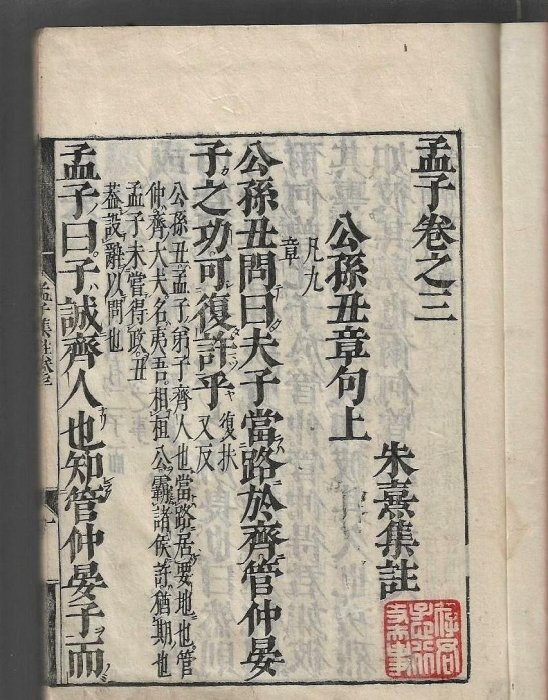 孟子卷之三
朱熹集註
公孫丑章句上
凡九
章
公孫丑問曰夫子當路於齊管仲晏
子之功可復許乎
復扶
又反
公孫丑孟子弟子齊人也當路居要地也管
仲齊大夫名夷吾相桓公霸諸侯許猶期也
孟子未嘗得政丑
葢設辭以問也
孟子曰子誠齊人也知管仲晏子而
孟子集註卷三